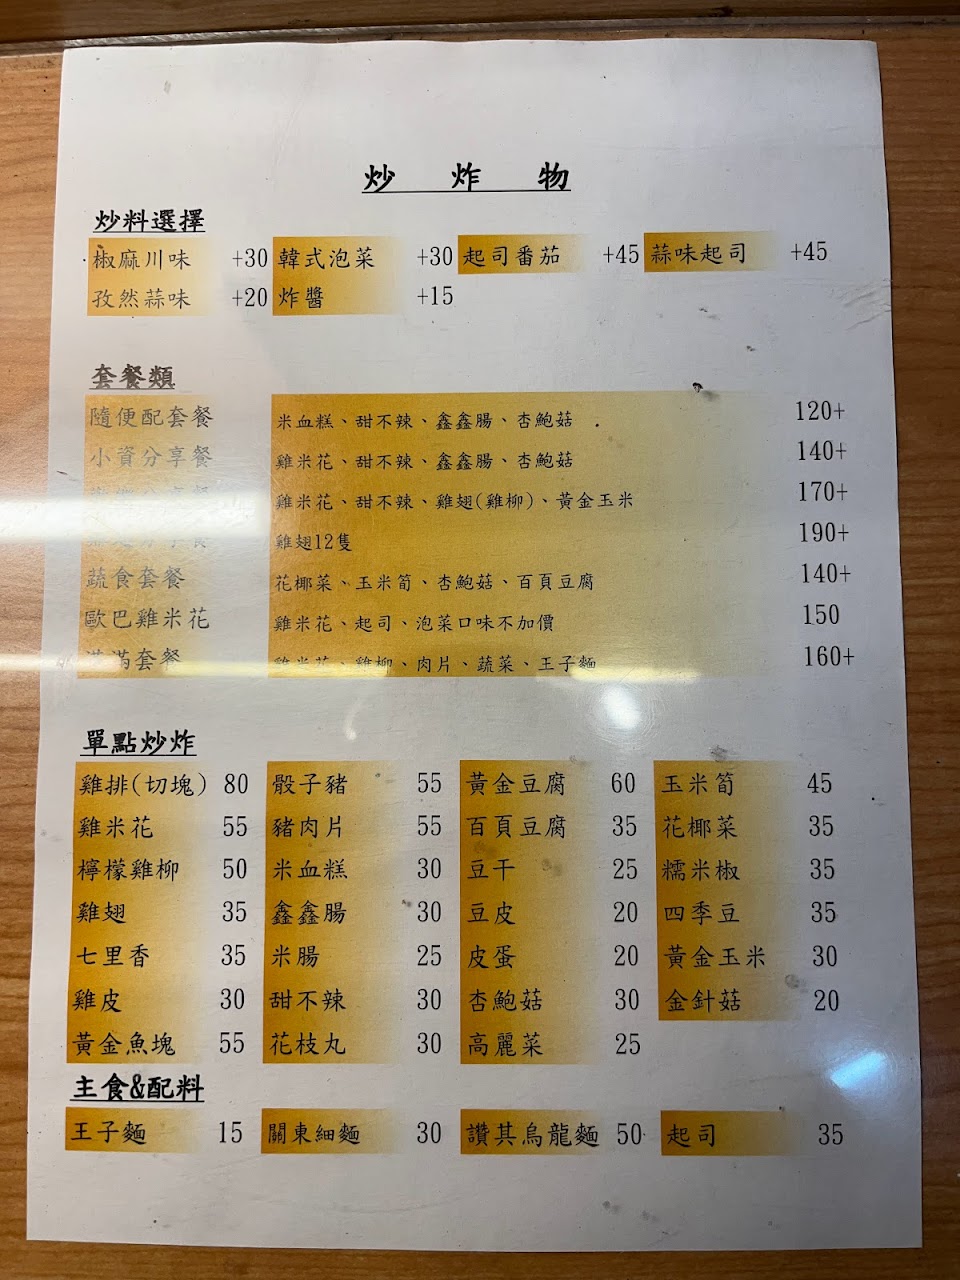 炒 炸 物
炒料選擇
椒麻川味 +30 韓式泡菜 +30 起司番茄 +45 蒜味起司 +45
孜然蒜味 +20 炸醬 +15
套餐類
隨便配套餐 米血糕、甜不辣、鑫鑫腸、杏鮑菇 120+
小資分享餐 雞米花、甜不辣、鑫鑫腸、杏鮑菇 140+
分享餐 雞米花、甜不辣、雞翅(雞柳)、黃金玉米 170+
分享餐 雞翅12隻 190+
蔬食套餐 花椰菜、玉米筍、杏鮑菇、百頁豆腐 140+
歐巴雞米花 雞米花、起司、泡菜口味不加價 150
滿滿套餐 雞米花、雞柳、肉片、蔬菜、王子麵 160+
單點炒炸
雞排(切塊) 80 骰子豬 55 黃金豆腐 60 玉米筍 45
雞米花 55 豬肉片 55 百頁豆腐 35 花椰菜 35
檸檬雞柳 50 米血糕 30 豆干 25 糯米椒 35
雞翅 35 鑫鑫腸 30 豆皮 20 四季豆 35
七里香 35 米腸 25 皮蛋 20 黃金玉米 30
雞皮 30 甜不辣 30 杏鮑菇 30 金針菇 20
黃金魚塊 55 花枝丸 30 高麗菜 25
主食&配料
王子麵 15 關東細麵 30 讚其烏龍麵 50 起司 35